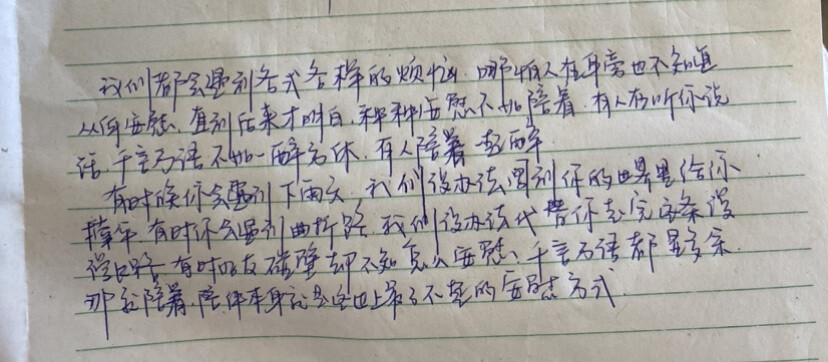 我们都会遇到各式各样的烦恼，哪怕人在身旁也不知道
从何安慰，直到后来才明白，种种安慰不如陪着，有人在听你说
话，千言万语不如一醉方休，有人陪着一起醉
有时候你会遇到下雨天，我们没办法闯到你的世界里给你
撑伞，有时你会遇到曲折路，我们没办法代替你去完这条漫
漫长路，有时朋友碰壁却不知怎么安慰，千言万语都显多余。
那就陪着，陪伴本身就是这世上最了不起的安慰方式